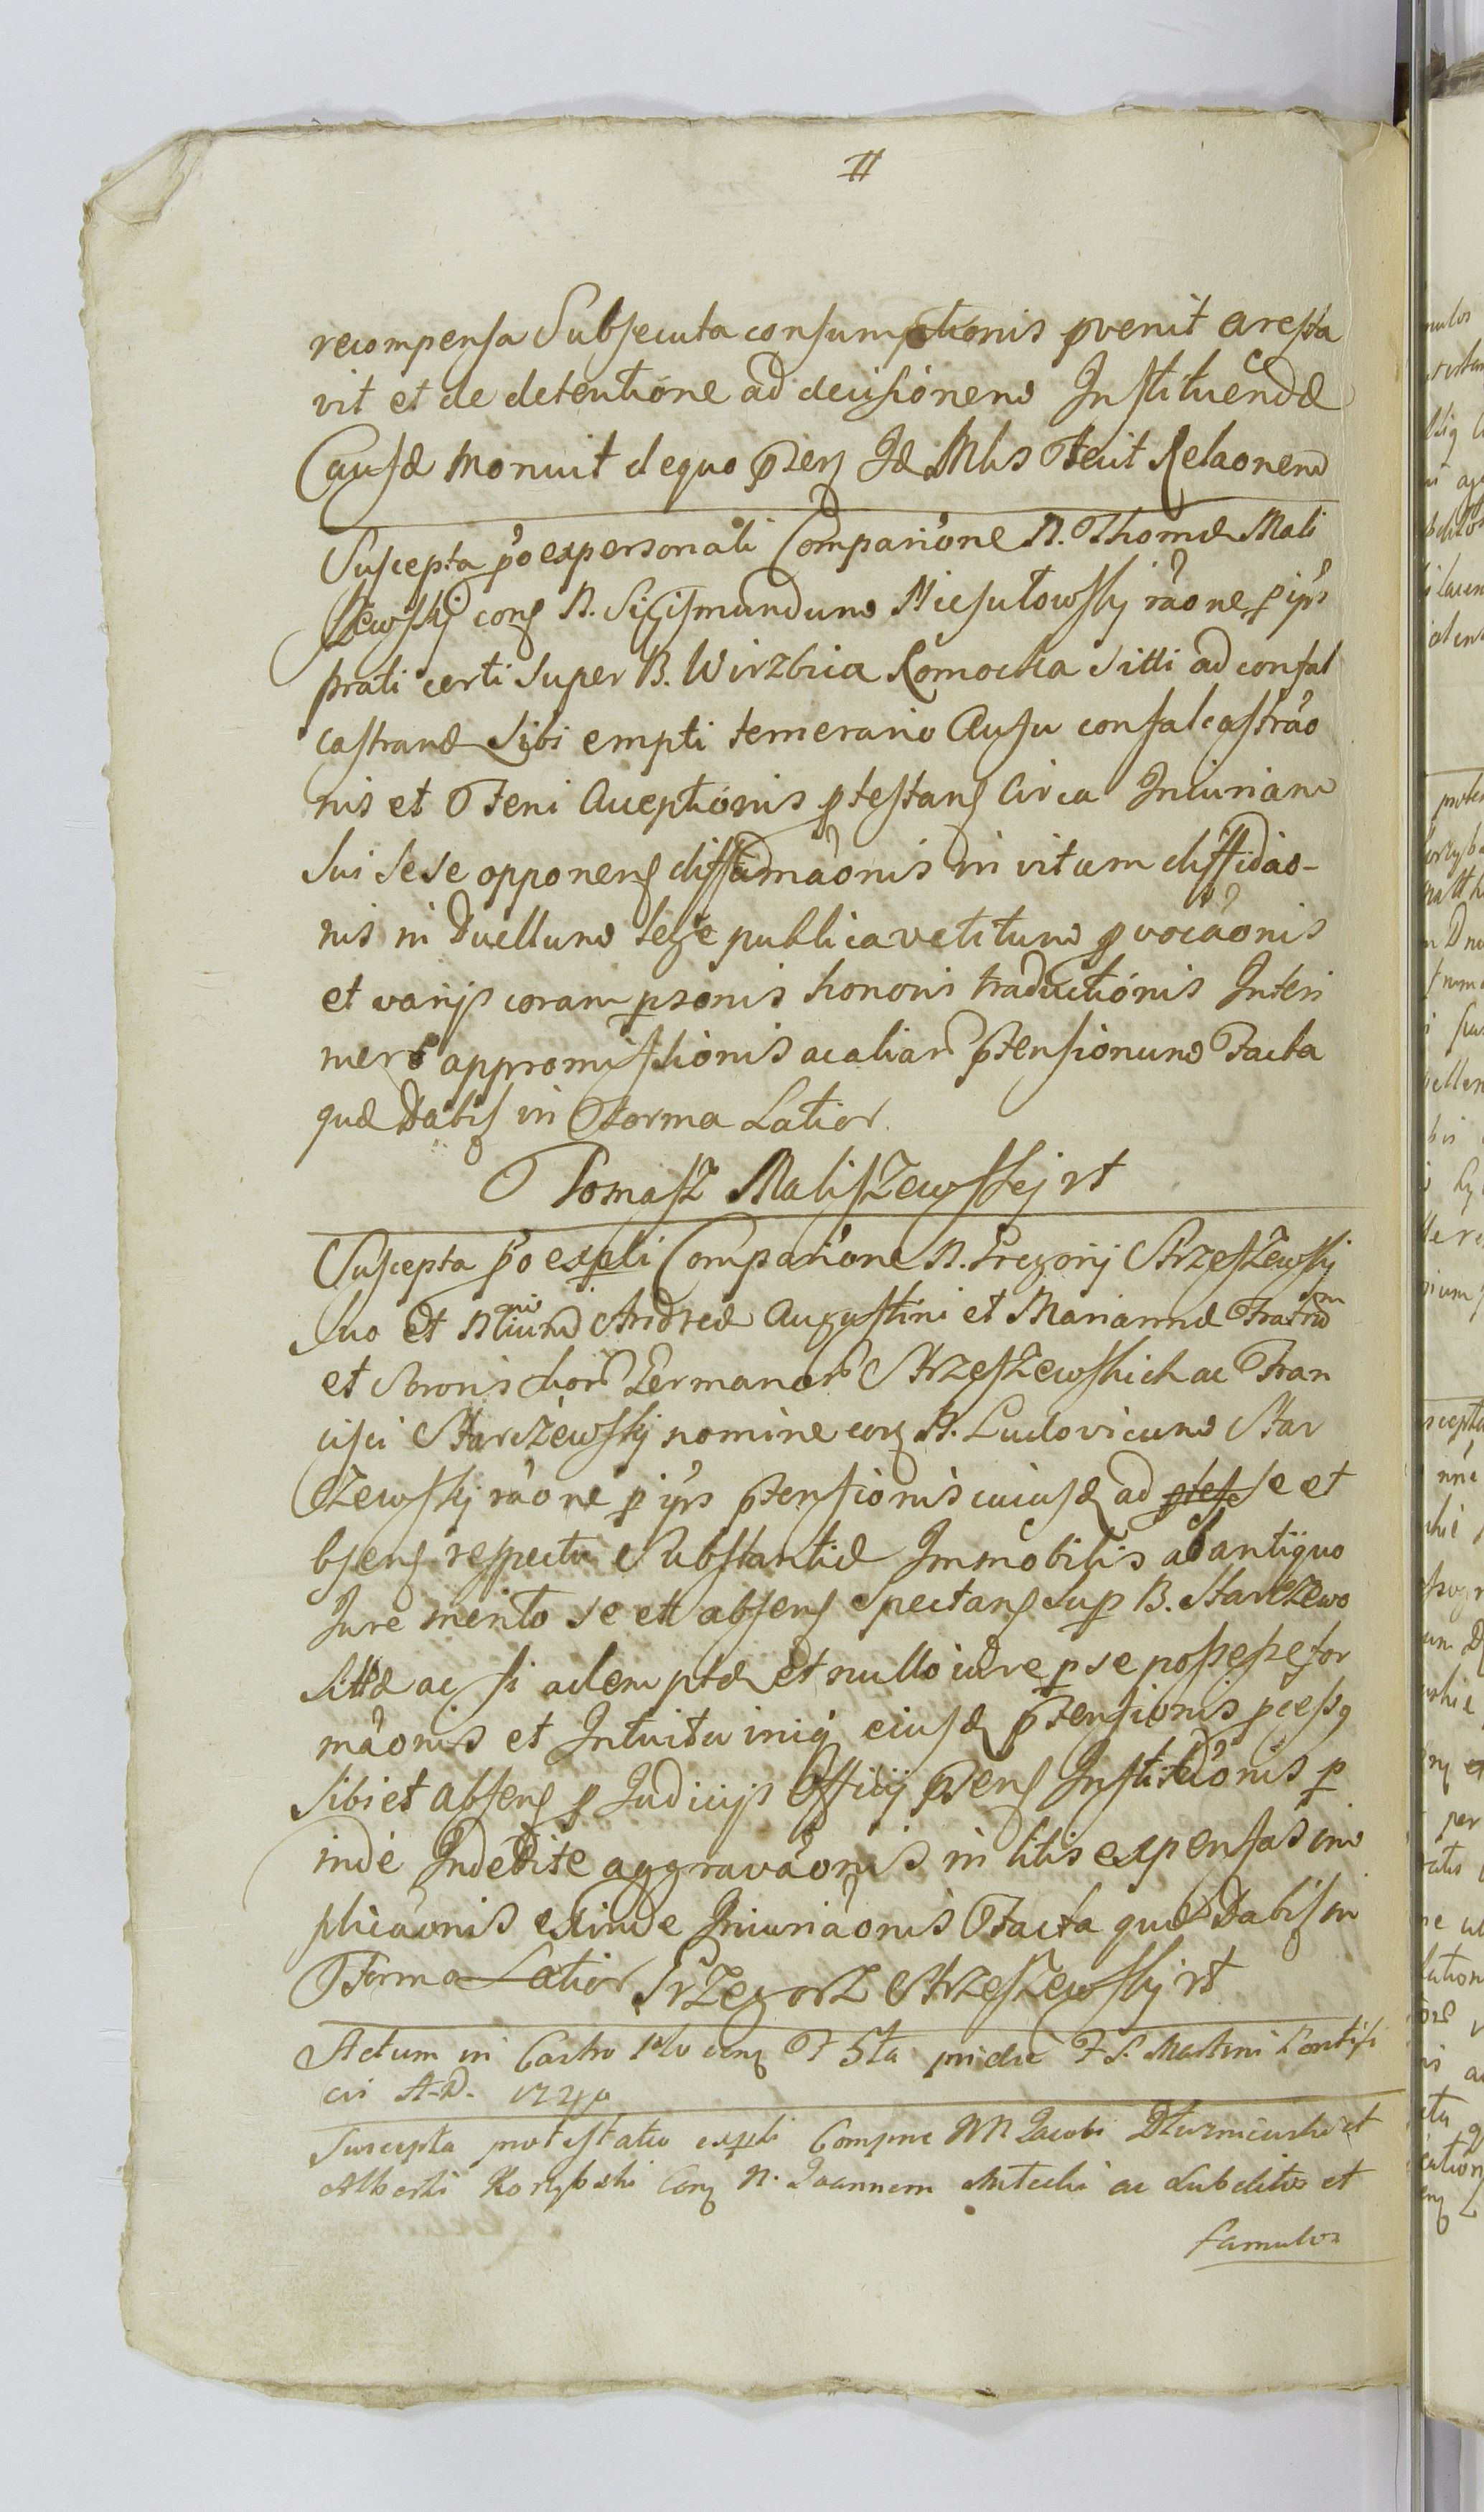 #
recompensa Subsecuta consumptionis pvenit aresta
vit et de detentione ad decisionem Instituendæ
Causæ monuit dequo pns Idæ Mlis Fecit Relaonem
Suscepta p̃o expersonali Compariõne N. Thomæ Mali
szewskj cong N. Sigismundum Miesułowskj rãone p ip̃s
prati certi Super B. Wirzbica Komocka Sitti ad confal
castrand Sibi empti temerario Ausu confalcastrão
nis et Feni Acceptionis ptestans Circa Iniuriam
Sui Sese opponens diffamãonis in vitam diffidão-
nis in Duellum lege publica vetitum pvocãonis
et varijs coram psonis honoris traductionis Interi
mero appromissionis ac aliar ptensionum Facta
quæ Dabis in Forma Latior
Tomasz Maliszewskj rt
Suscepta p̃o expli Compariõne N. Gregorij Strzeszewskj
Suo et Nlium Andreæ Augustini et Mariannæ Fratrum
et Sororis hor Germanor Strzeszewskich ac Fran
cisci Starczewskj nomine cong N. Ludovicum Star
czewskj rãone p ip̃s ptensionis cuiusd ad se et
bsens respectu Substantiæ Immobilis ab antiquo
Jure merito se et absens Spectans Sup B. Starczewo
Sittæ ac si ademptæ et nullo iure p se possessæ for
mãonis et Intuitu iniq eiusd ptensionis pcessq
Sibi et absens p Judicijs Officij psens Institutionis p
inde Indebite aggravãonis in litis expensas im
plicãonis exinde Iniuriãonis Facta quæ Dabis in
Forma Latior Grzegorz Strzeszewskj rt
Actum in Castro F 5ta pridie F S. Martini Pontifi
cis A. D. 1740
Suscepta protestatio expli Compne NN Jacobi et
Alberti Korzybski Cong N. Joannem ac Subditos et
famulos